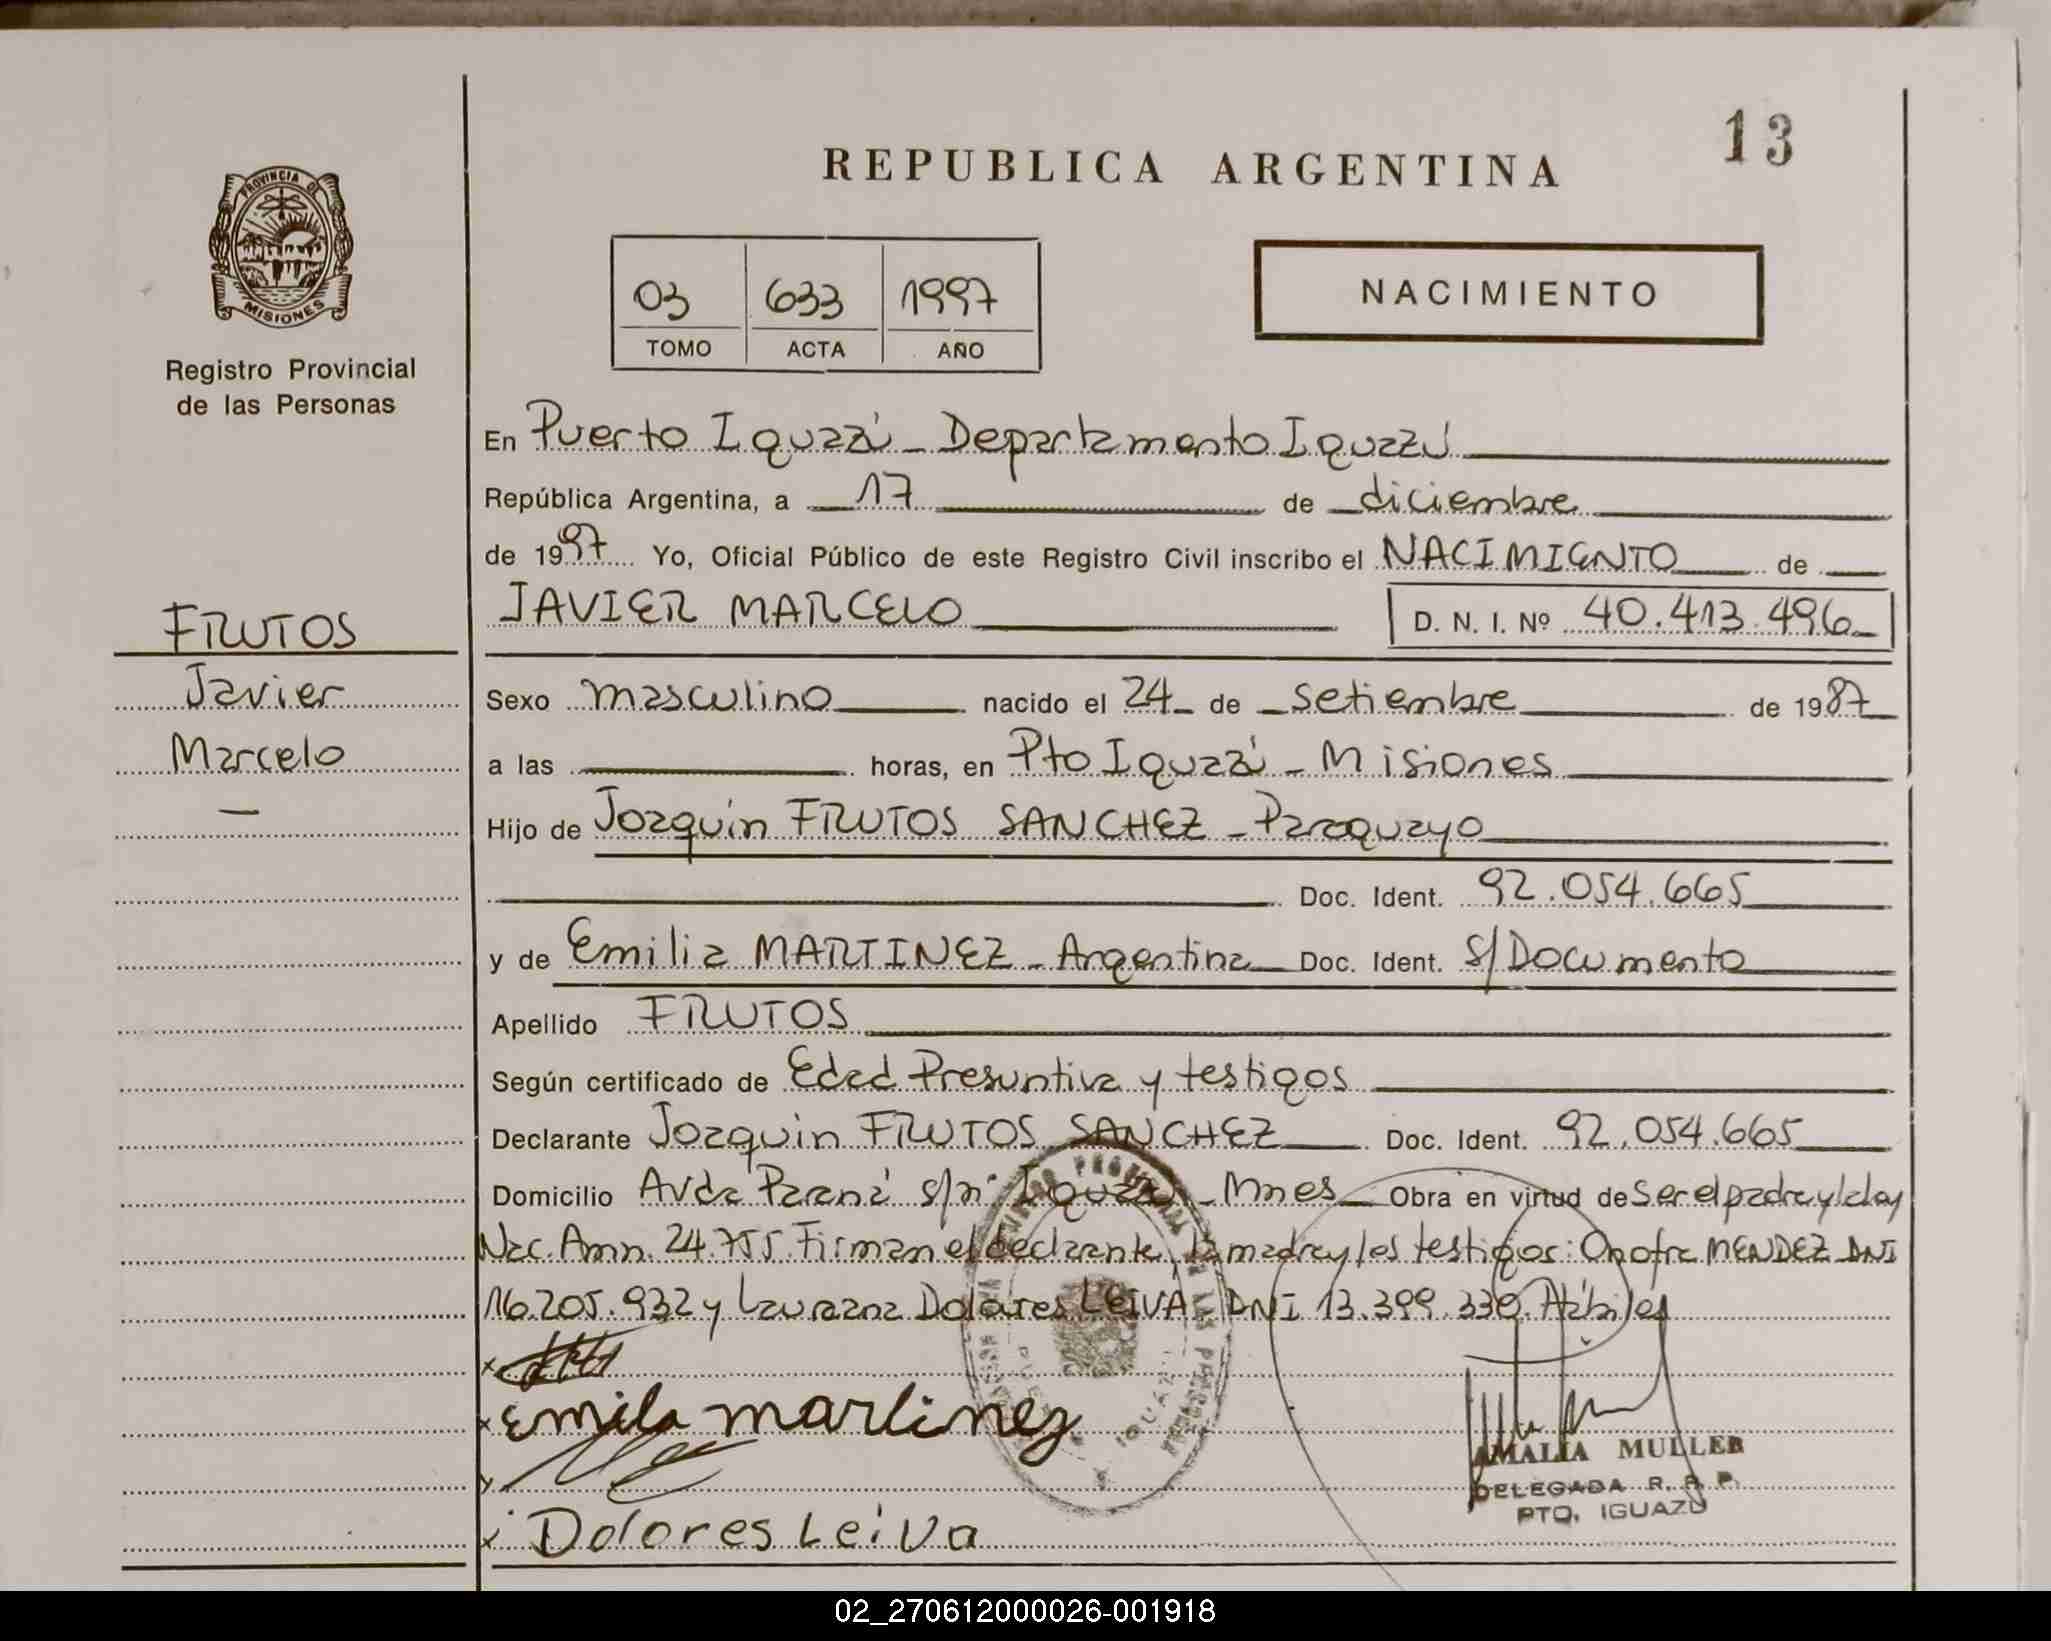 13
REPUBLICA ARGENTINA
PROVINCIA DE
MISIONES
Registro Provincial
de las Personas
03 633 1997
TOMO ACTA AÑO
NACIMIENTO
En Puerto Iguazú - Departamento Iguazú
República Argentina, a 17 de diciembre
de 1997 Yo, Oficial Público de este Registro Civil inscribo el NACIMIENTO de
JAVIER MARCELO D. N. I. Nº 40.413.496
FRUTOS
Javier
Marcelo
Sexo masculino nacido el 24 de setiembre de 1987
a las horas, en Pto Iguazú - Misiones
Hijo de Joaquín FRUTOS SANCHEZ - Paraguayo
Doc. Ident. 92.054.665
y de Emilia MARTINEZ - Argentina Doc. Ident. s/Documento
Apellido FRUTOS
Según certificado de Edad Presuntiva y testigos
Declarante Joaquín FRUTOS SANCHEZ Doc. Ident. 92.054.665
Domicilio Avda Paraná s/nº Iguazú - Mnes Obra en virtud de ser el padre y la ley
Nac. Amn. 24.755. Firman el declarante, la madre y los testigos: Onofre MENDEZ DNI
16.205.932 y Laureana Dolores LEIVA DNI 13.399.330. Hábiles
x
x Emila martinez
x Dolores Leiva
AMALIA MULLER
DELEGADA R. P. P.
PTO. IGUAZU
02_270612000026-001918